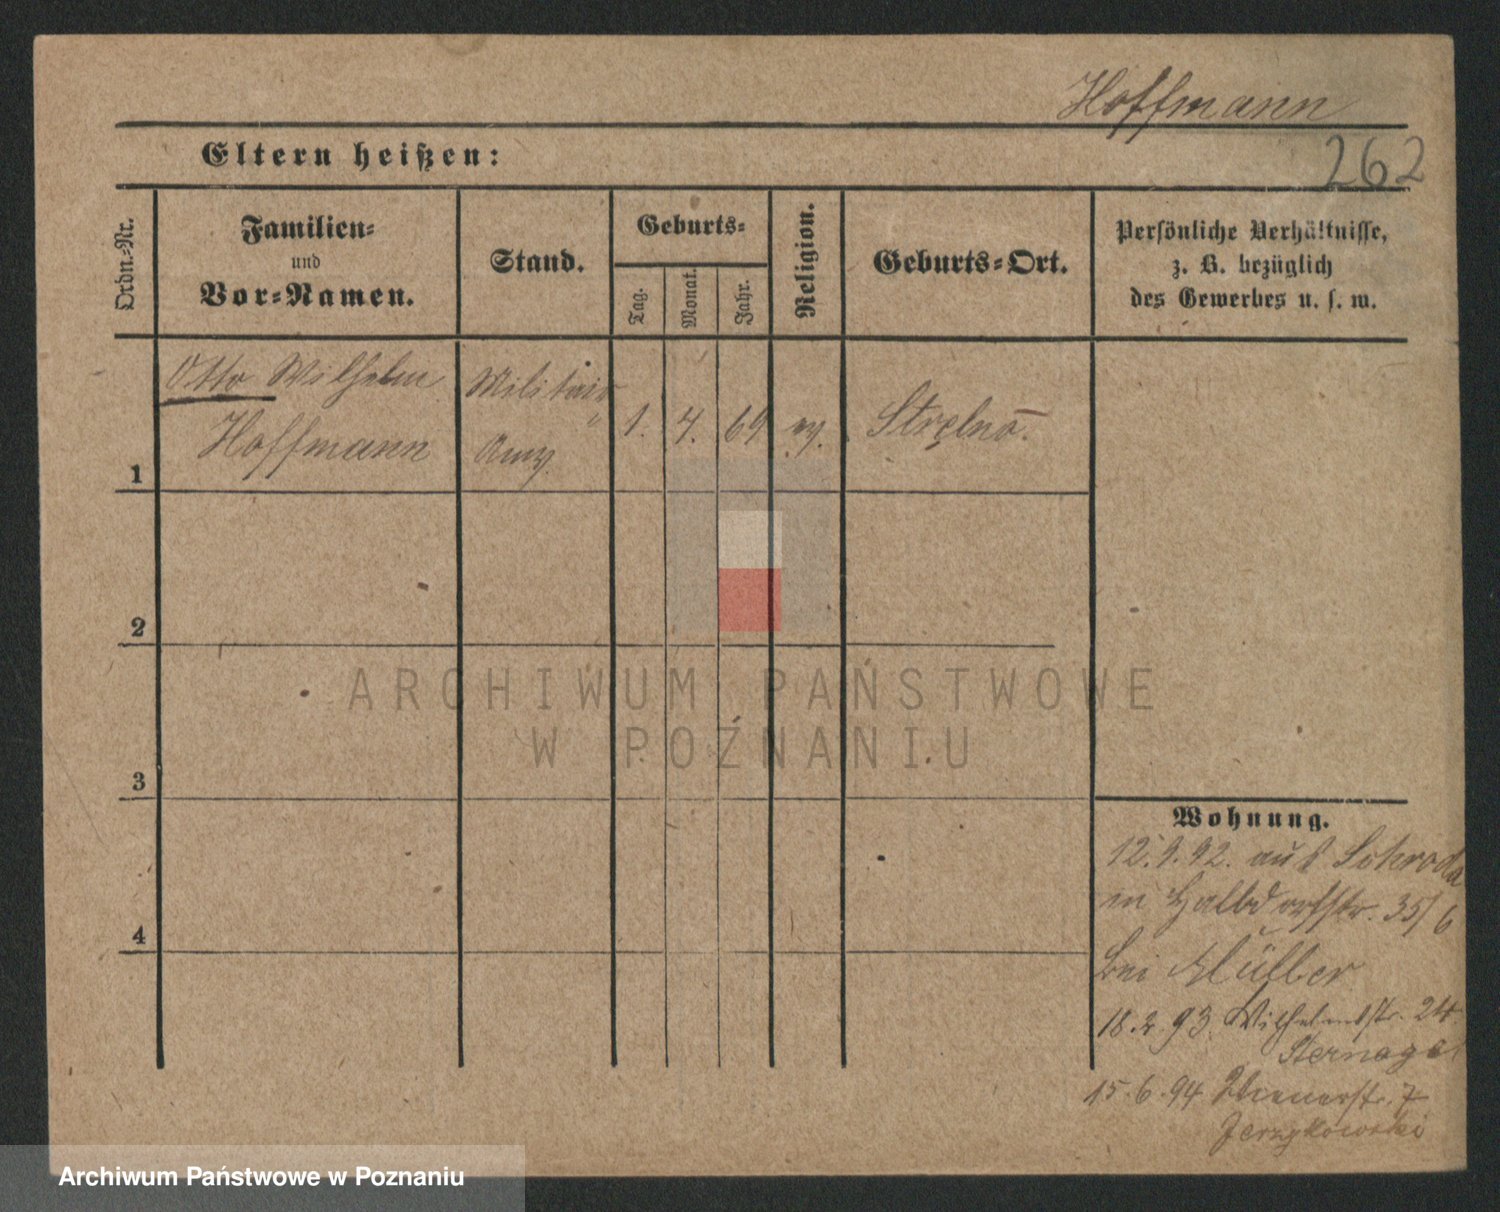 Hoffmann
262
Eltern heißen:
Ordn.-Nr.
Familien-
und
Vor-Namen.
Stand.
Geburts-
Tag.
Monat.
Jahr.
Religion.
Geburts-Ort.
Persönliche Verhältnisse,
z. B. bezüglich
des Gewerbes u. s. w.
1
Otto Wilhelm
Hoffmann
Militair
1. 4. 69 ev. Strelno.
2
3
4
ARCHIWUM PAŃSTWOWE
W POZNANIU
Wohnung.
12.9.92. aus Schroda
in Halbdorfstr. 35/6
bei Müller
18.2.93. Wilhelmstr. 24.
Sternagel
15.6.94 Wienerstr. 7
Jerzykowski
Archiwum Państwowe w Poznaniu